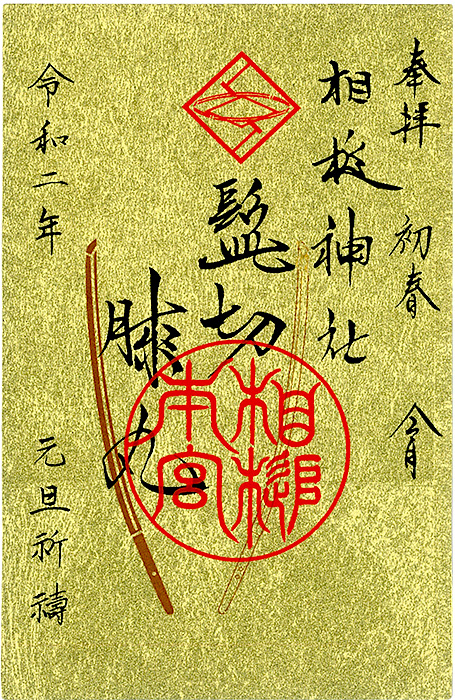 奉拝 初春 令月
相槌神社
髭切
膝丸
令和二年 元旦祈禱
相槌
本宮